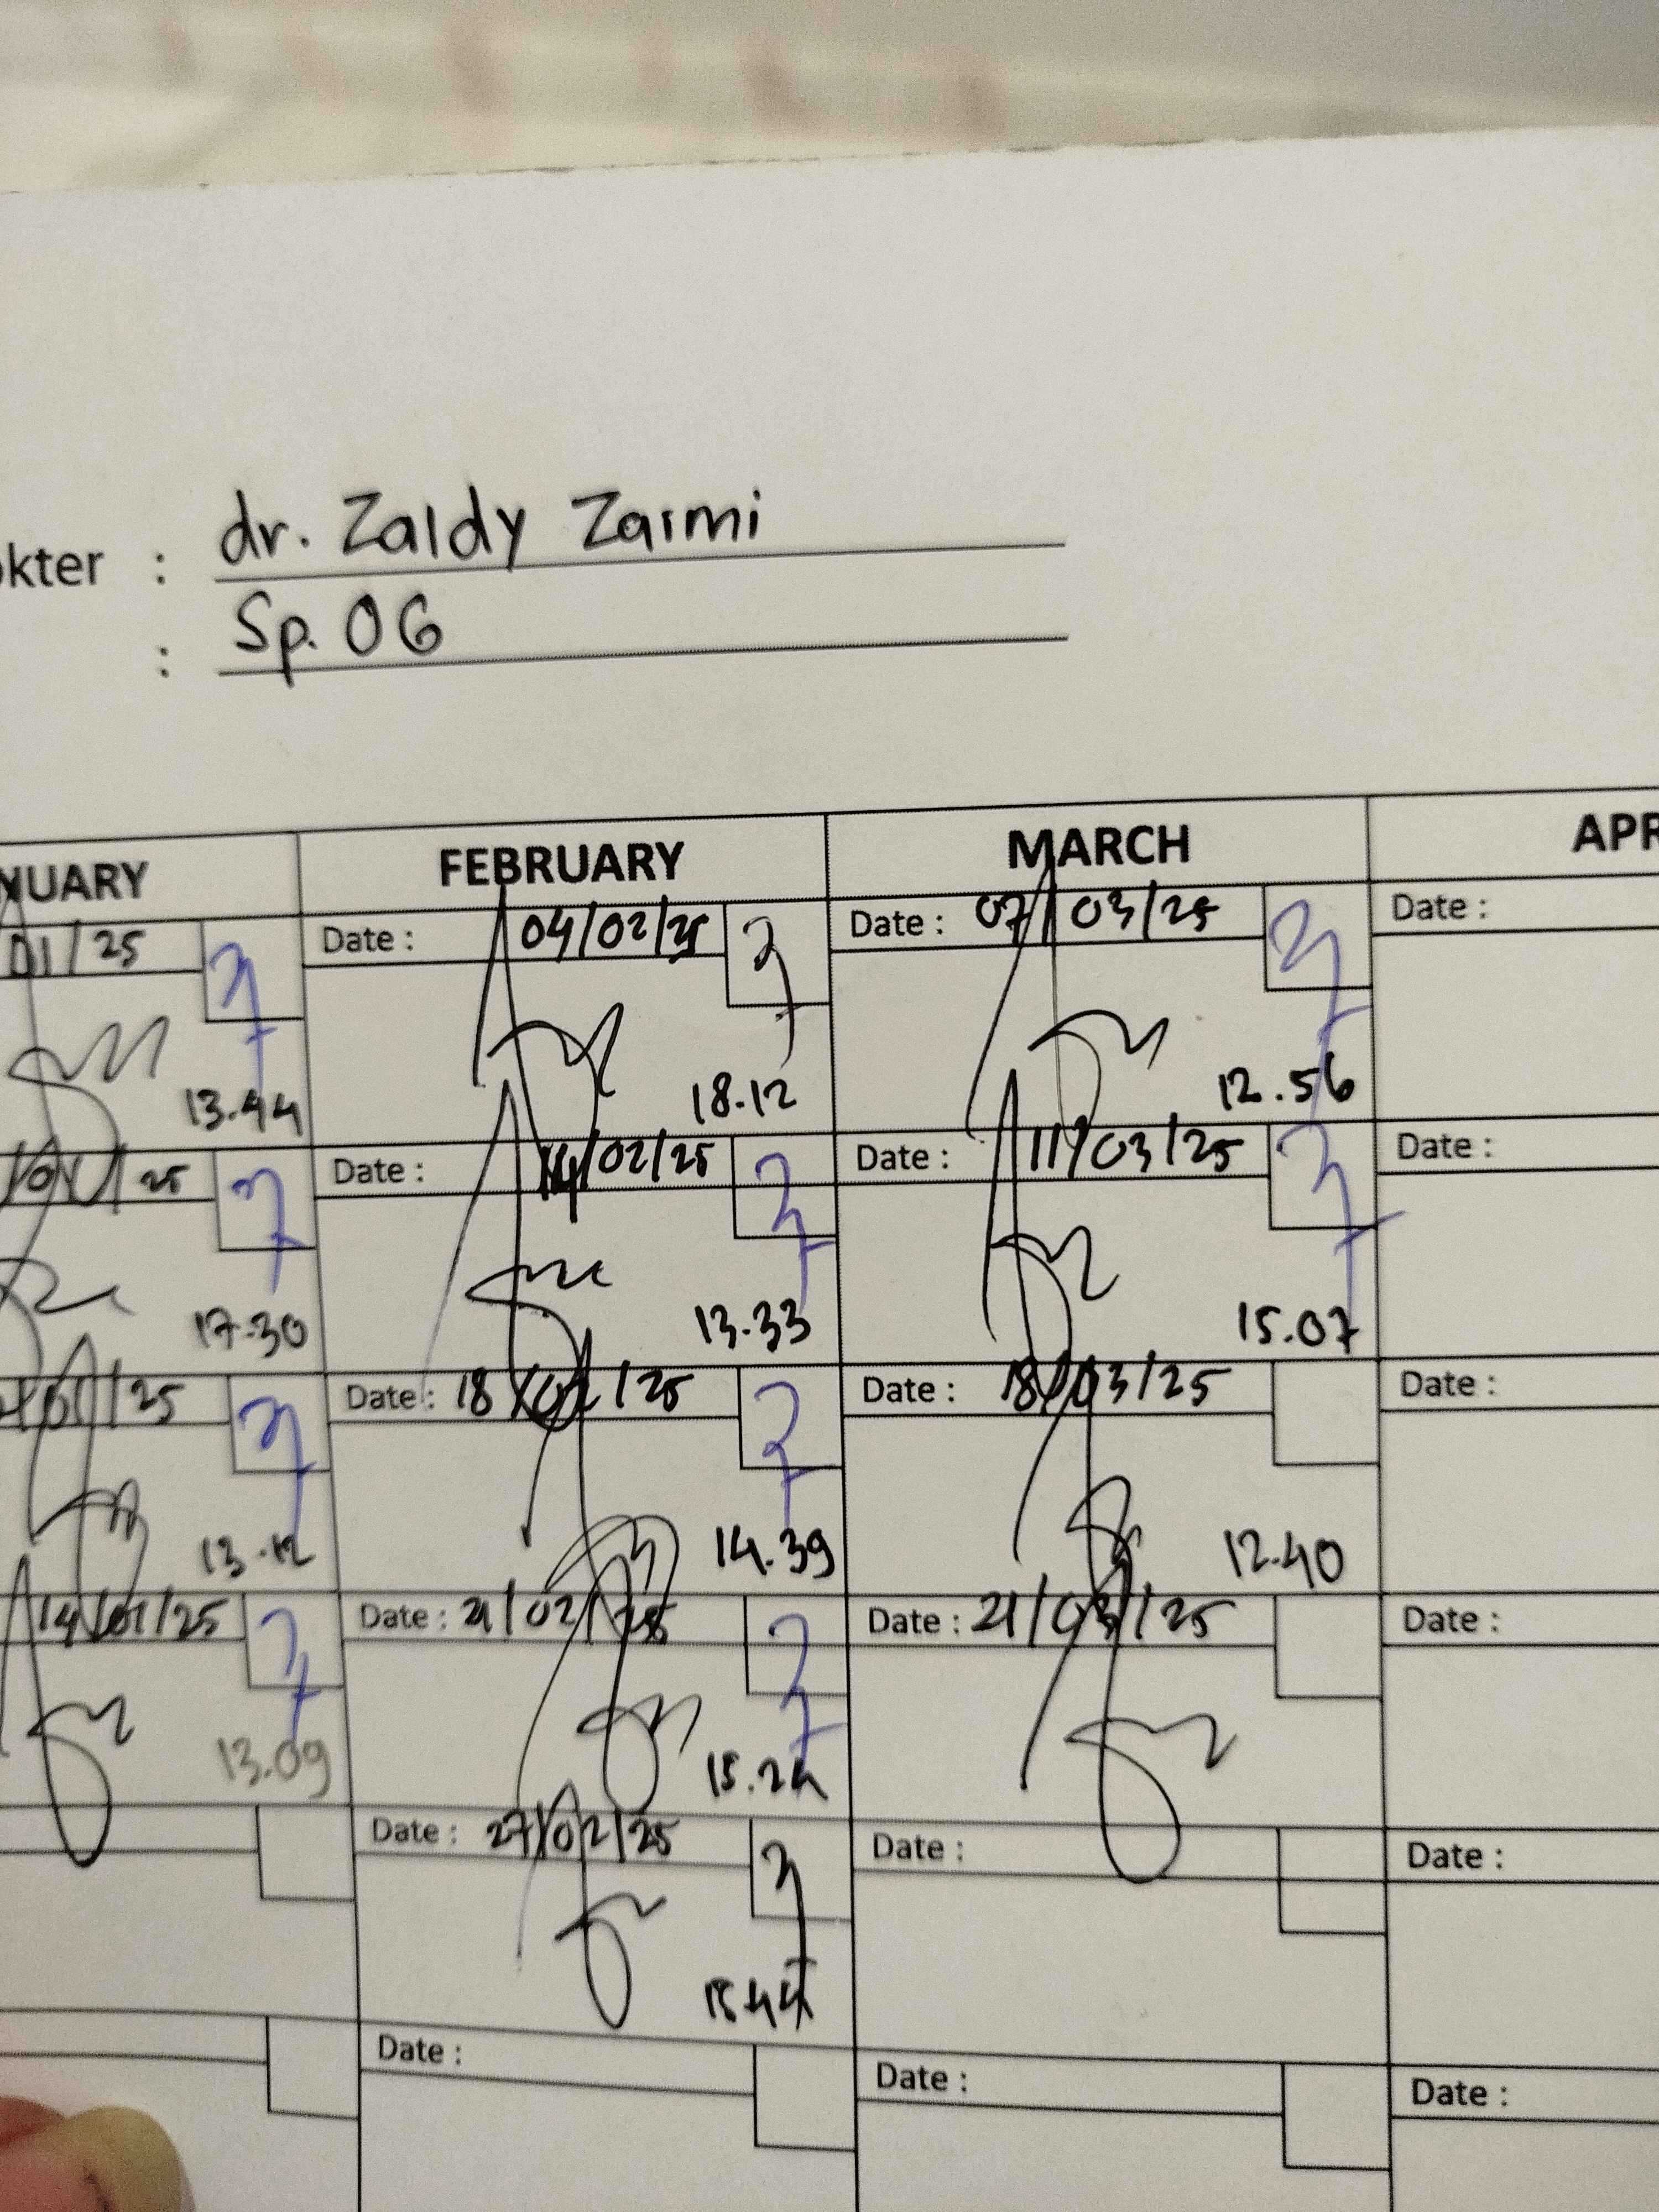 dr. Zaldy Zarmi
okter :
Sp. OG
:
NUARY FEBRUARY MARCH APR
01/25 Date : 04/02/25 Date : 07/03/25 Date :
13.44 18.12 12.56
/01/25 Date : 14/02/25 Date : 11/03/25 Date :
17.30 13.33 15.07
/01/25 Date : 18/02/25 Date : 18/03/25 Date :
13.12 14.39 12.40
14/01/25 Date : 21/02/25 Date : 21/03/25 Date :
13.09 15.24
Date : 27/02/25 Date : Date :
15.44
Date : Date : Date :